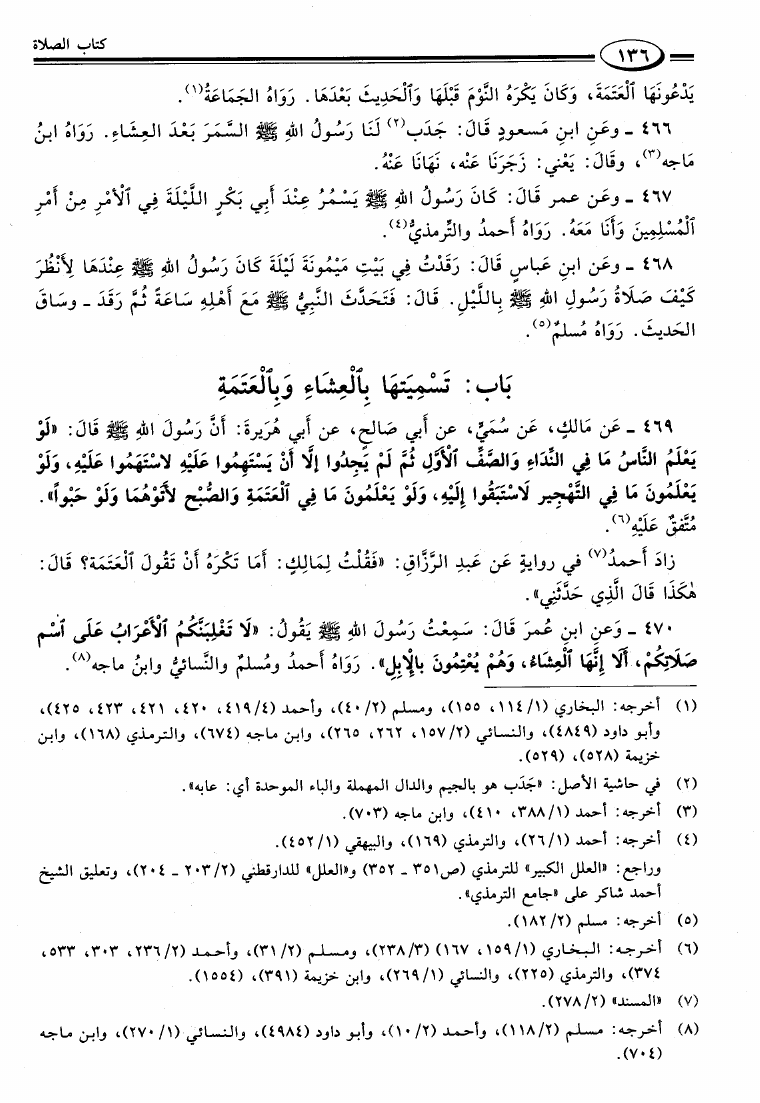 ١٣٦ كتاب الصلاة
يَدْعُونَهَا ٱلْعَتَمَةَ، وَكَانَ يَكْرَهُ النَّوْمَ قَبْلَهَا وَٱلْحَدِيثَ بَعْدَهَا. رَوَاهُ الجَمَاعَةُ(١).
٤٦٦ ـ وعَنِ ابنِ مَسعودٍ قَالَ: جَدَب(٢) لَنَا رَسُولُ اللهِ ﷺ السَّمَرَ بَعْدَ العِشَاءِ. رَوَاهُ ابنُ
ماجه(٣)، وقَالَ: يَعْنِي: زَجَرَنَا عَنْه، نَهَانَا عَنْهُ.
٤٦٧ ـ وعَن عمر قَالَ: كَانَ رَسُولُ اللهِ ﷺ يَسْمُرُ عِنْدَ أَبِي بَكْرٍ اللَّيْلَةَ فِي ٱلْأَمْرِ مِنْ أَمْرِ
ٱلْمُسْلِمِينَ وَأَنَا مَعَهُ. رَوَاهُ أَحمدُ والتِّرمذيُّ(٤).
٤٦٨ ـ وعَنِ ابنِ عَباسٍ قَالَ: رَقَدْتُ فِي بَيْتِ مَيْمُونَةَ لَيْلَةَ كَانَ رَسُولُ اللهِ ﷺ عِنْدَهَا لِأَنْظُرَ
كَيْفَ صَلَاةُ رَسُولِ اللهِ ﷺ بِاللَّيْلِ. قَالَ: فَتَحَدَّثَ النَّبِيُّ ﷺ مَعَ أَهْلِهِ سَاعَةً ثُمَّ رَقَدَ ـ وسَاقَ
الحَديثَ. رَوَاهُ مُسلمٌ(٥).
بَاب: تَسْمِيَتهَا بِٱلْعِشَاءِ وَبِٱلْعَتَمَةِ
٤٦٩ ـ عَن مَالكٍ، عَن سُمَيٍّ، عن أَبي صَالحٍ، عن أَبي هُرَيرةَ: أَنَّ رَسُولَ اللهِ ﷺ قَالَ: «لَوْ
يَعْلَمُ النَّاسُ مَا فِي النِّدَاءِ وَالصَّفِّ ٱلْأَوَّلِ ثُمَّ لَمْ يَجِدُوا إلَّا أَنْ يَسْتَهِمُوا عَلَيْهِ لاسْتَهَمُوا عَلَيْهِ، وَلَوْ
يَعْلَمُونَ مَا فِي التَّهْجِيرِ لَاسْتَبَقُوا إلَيْهِ، وَلَوْ يَعْلَمُونَ مَا فِي ٱلْعَتَمَةِ وَالصُّبْحِ لأَتَوْهُمَا وَلَوْ حَبْواً».
مُتَّفقٌ عَلَيْهِ(٦).
زادَ أَحمدُ(٧) في روايةٍ عَن عَبدِ الرَّزَّاقِ: «فَقُلْتُ لِمَالِكٍ: أَمَا تَكْرَهُ أَنْ تَقُولَ ٱلْعَتَمَة؟ قَالَ:
هٰكَذَا قَالَ الَّذِي حَدَّثَنِي».
٤٧٠ ـ وَعَنِ ابنِ عُمرَ قَالَ: سَمِعْتُ رَسُولَ اللهِ ﷺ يَقُولُ: «لَا تَغْلِبَنَّكُمُ ٱلْأَعْرَابُ عَلَى ٱسْمِ
صَلَاتِكُمْ، أَلَا إِنَّهَا ٱلْعِشَاءُ، وَهُمْ يُعْتِمُونَ بِالإِبِلِ». رَوَاهُ أَحمدُ ومُسلمٌ والنَّسائيُّ وابنُ ماجه(٨).
(١) أخرجه: البخاري (١/ ١١٤، ١٥٥)، ومسلم (٤٠/٢)، وأحمد (٤/ ٤١٩، ٤٢٠، ٤٢١، ٤٢٣، ٤٢٥)،
وأبو داود (٤٨٤٩)، والنسائي (٢/ ١٥٧، ٢٦٢، ٢٦٥)، وابن ماجه (٦٧٤)، والترمذي (١٦٨)، وابن
خزيمة (٥٢٨)، (٥٢٩).
(٢) في حاشية الأصل: «جَدَب هو بالجيم والدال المهملة والباء الموحدة أي: عابه».
(٣) أخرجه: أحمد (١/ ٣٨٨، ٤١٠)، وابن ماجه (٧٠٣).
(٤) أخرجه: أحمد (٢٦/١)، والترمذي (١٦٩)، والبيهقي (٤٥٢/١).
وراجع: «العلل الكبير» للترمذي (ص٣٥١ ـ ٣٥٢) و«العلل» للدارقطني (٢٠٣/٢ ـ ٢٠٤)، وتعليق الشيخ
أحمد شاكر على «جامع الترمذي».
(٥) أخرجه: مسلم (١٨٢/٢).
(٦) أخرجه: البخاري (١/ ١٥٩، ١٦٧) (٢٣٨/٣)، ومسلم (٣١/٢)، وأحمد (٢/ ٢٣٦، ٣٠٣، ٥٣٣،
٣٧٤)، والترمذي (٢٢٥)، والنسائي (٢٦٩/١)، وابن خزيمة (٣٩١)، (١٥٥٤).
(٧) «المسند» (٢٧٨/٢).
(٨) أخرجه: مسلم (١١٨/٢)، وأحمد (١٠/٢)، وأبو داود (٤٩٨٤)، والنسائي (٢٧٠/١)، وابن ماجه
(٧٠٤).